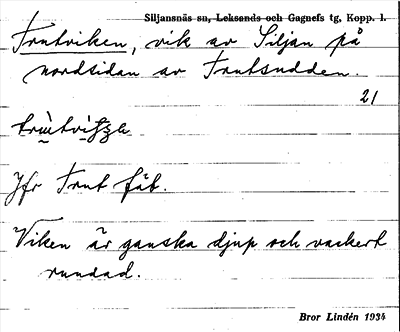 Siljansnäs sn, Leksands och Gagnefs tg, Kopp. l.
Trutviken, vik av Siljan på
nordsidan av Trutsudden.
21
Jfr Trut fäb.
Viken är ganska djup och vackert
rundad.
Bror Lindén 1934